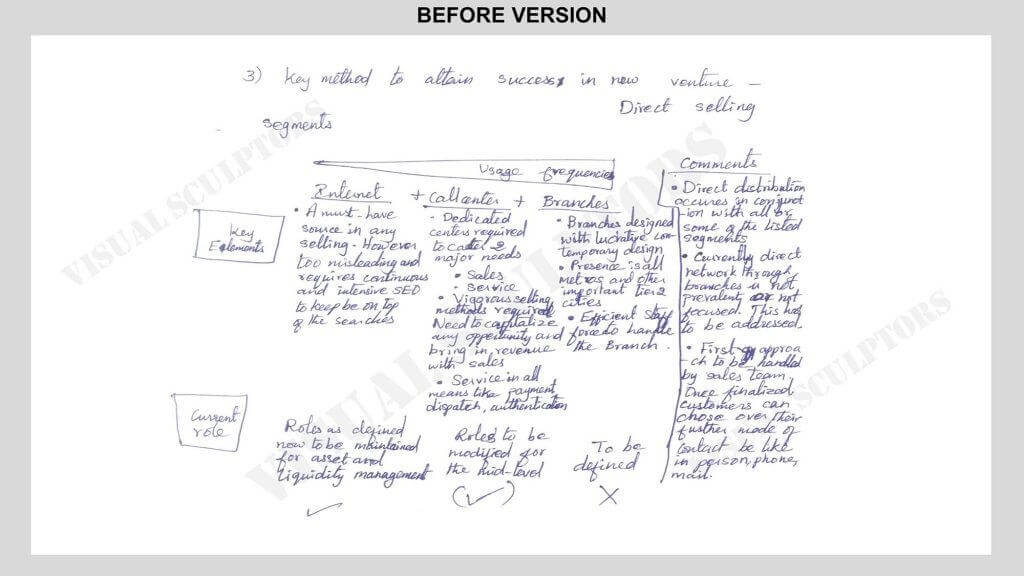 BEFORE VERSION
3) Key method to attain success in new venture –
Direct selling
segments
Usage frequencies
Internet + Call center + Branches
Comments
Key
Elements
• A must-have
source in any
selling. However
too misleading and
requires continuous
and intensive SEO
to keep be on top
of the searches
• Dedicated
centers required
to cater 2
major needs
• Sales
• Service
• Vigrous selling
methods required
Need to capitalize
any opportunity and
bring in revenue
with sales
• Service in all
means like payment
dispatch, authentication
• Branches designed
with lucrative con-
temporary design
• Presence is all
metros and other
important tier 2
cities
• Efficient staff
force to handle
the Branch.
• Direct distribution
occures in conjunct
-ion with all or
some of the listed
segments
• Currently direct
network through
branches is not
prevalent or not
focused. This has
to be addressed.
• First approa
-ch to be handled
by sales team.
Once finalized
customers can
chose over their
further mode of
contact be like
in person, phone,
mail.
Current
role
Roles as defined
now to be maintained
for asset and
liquidity management
✓
Roles to be
modified for
the mid-level
(✓)
To be
defined
X
VISUAL SCULPTORS
VISUAL SCULPTORS
VISUAL SCULPTORS